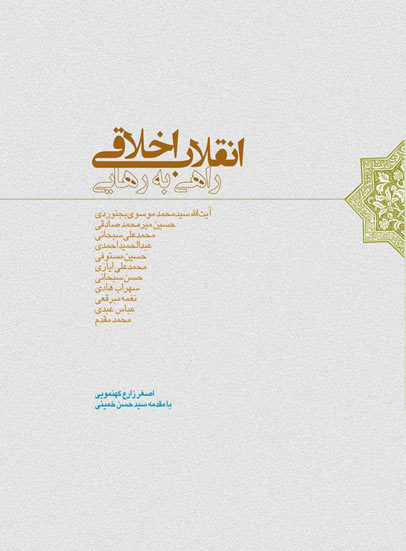 انقلاب اخلاقی
راهی به رهایی
آیت‌الله سیدمحمد موسوی بجنوردی
حسین میرمحمد صادقی
محمدعلی سبحانی
عبدالحمید احمدی
حسین مستوفی
محمدعلی ایازی
حسن سبحانی
سهراب هادی
نغمه میرقعی
عباس عبدی
محمد مقدم
اصغر زارع کهنمویی
با مقدمه سید حسن خمینی